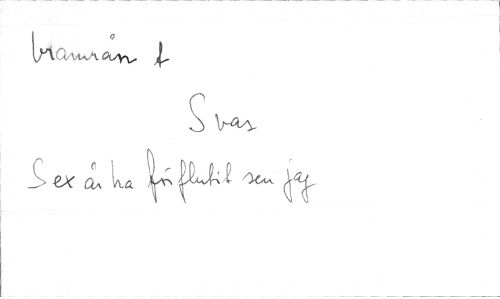 framrån t
Svar
Sex år ha förflutit sen jag